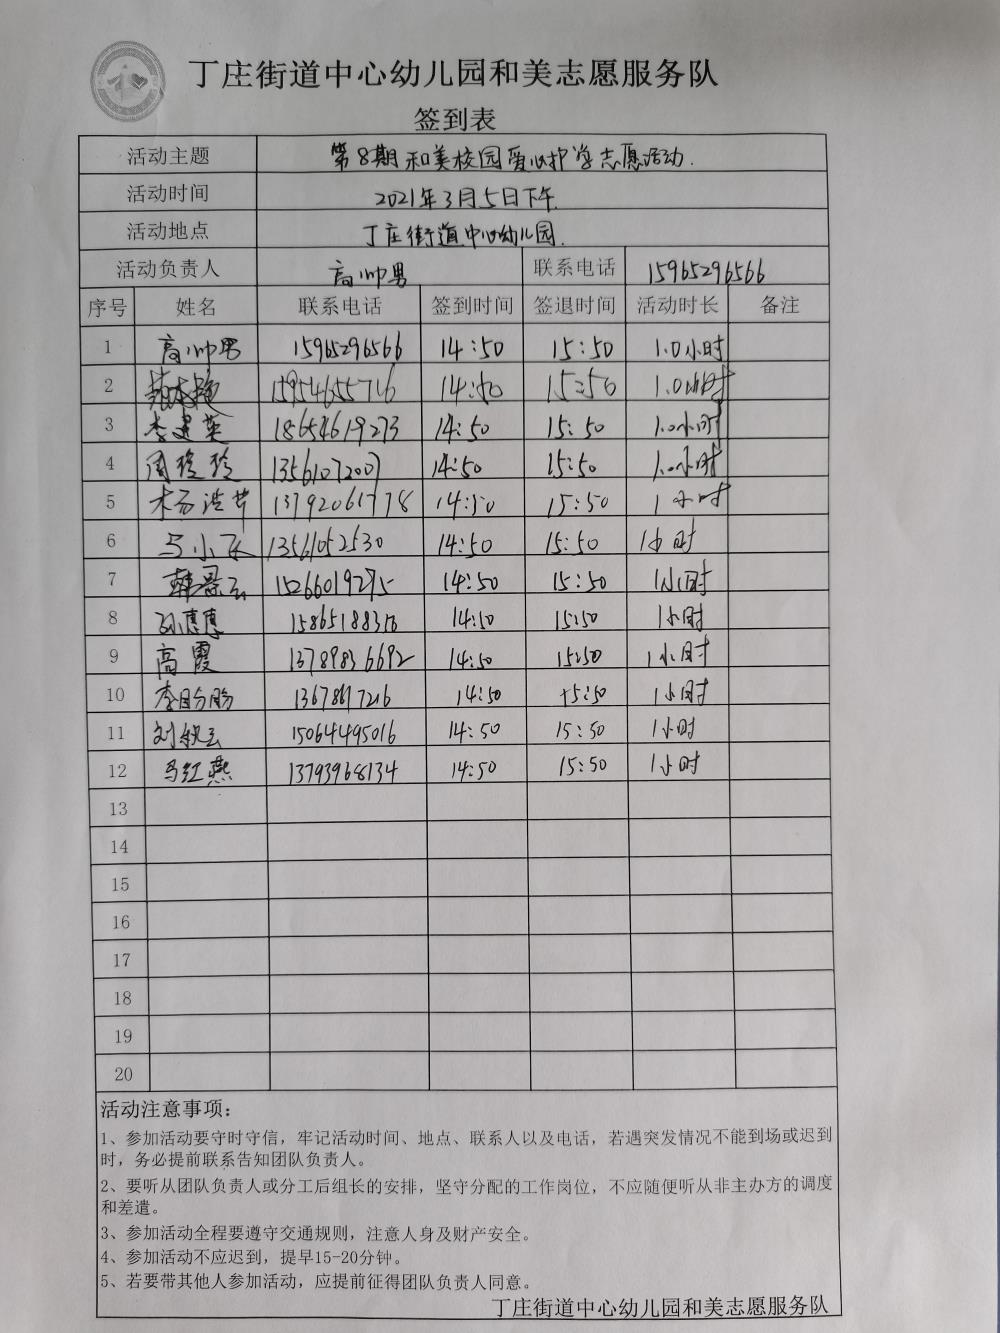 丁庄街道中心幼儿园和美志愿服务队
签到表
活动主题 第8期和美校园爱心护学志愿活动.
活动时间 2021年3月5日下午
活动地点 丁庄街道中心幼儿园.
活动负责人 高帅男 联系电话 15965296566
序号 姓名 联系电话 签到时间 签退时间 活动时长 备注
1 高帅男 15965296566 14:50 15:50 1.0小时
2 15954655716 14:50 15:50 1.0小时
3 李建英 18654619273 14:50 15:50 1.0小时
4 周玲玲 13561072007 14:50 15:50 1.0小时
5 13792061778 14:50 15:50 1小时
6 马小飞 13561052530 14:50 15:50 1小时
7 韩景云 15266019275 14:50 15:50 1小时
8 孙惠惠 14:50 15:50 1小时
9 高霞 13789836692 14:50 15:50 1小时
10 李盼盼 14:50 15:50 1小时
11 刘秋云 15064495016 14:50 15:50 1小时
12 马红燕 13793968134 14:50 15:50 1小时
13
14
15
16
17
18
19
20
活动注意事项：
1、参加活动要守时守信，牢记活动时间、地点、联系人以及电话，若遇突发情况不能到场或迟到
时，务必提前联系告知团队负责人。
2、要听从团队负责人或分工后组长的安排，坚守分配的工作岗位，不应随便听从非主办方的调度
和差遣。
3、参加活动全程要遵守交通规则，注意人身及财产安全。
4、参加活动不应迟到，提早15-20分钟。
5、若要带其他人参加活动，应提前征得团队负责人同意。
丁庄街道中心幼儿园和美志愿服务队